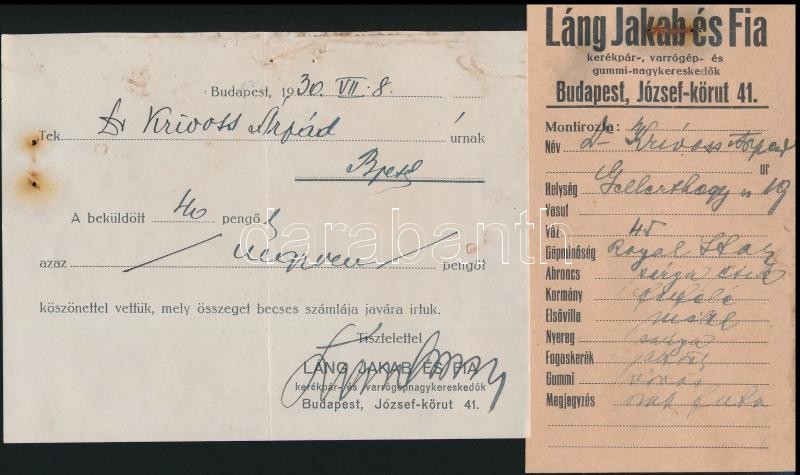 Budapest, 1930. VII. 8.
Tek Dr Krivoss Árpád úrnak
Bpest
A beküldött 40 pengőt
azaz negyven pengőt
köszönettel vettük, mely összeget becses számlája javára irtuk.
Tisztelettel
LÁNG JAKAB ÉS FIA
kerékpár- és varrógépnagykereskedők
Budapest, József-körut 41.
darabanth
Láng Jakab és Fia
kerékpár-, varrógép- és
gummi-nagykereskedők
Budapest, József-körut 41.
Montirozta:
Név Dr Krivoss Árpád
ur
Helység Gellerthegy u 19
Vasut
Váz 45
Gépminőség Royal Star
Abroncs sarga csik
Kormány
Elsővilla
Nyereg sarga
Fogaskerék
Gummi vörös
Megjegyzés